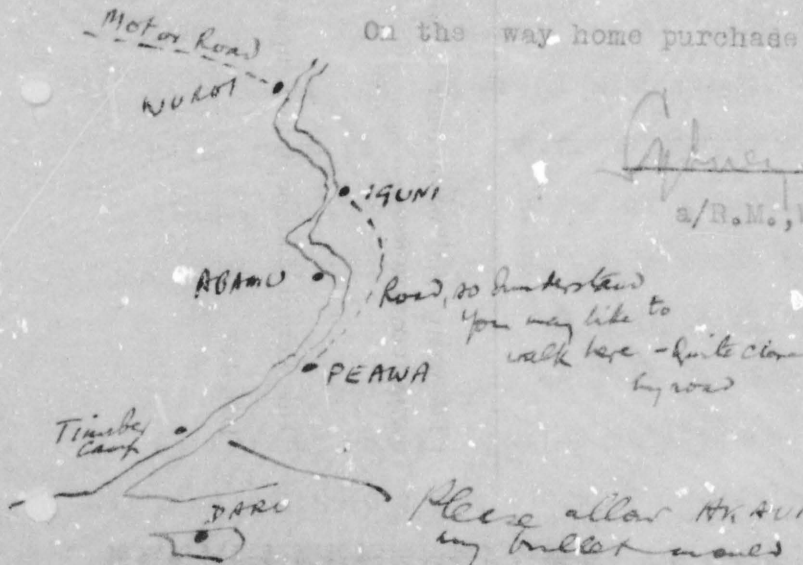 On the way home purchase
Motor Road
WUROI
Sydney
a/R.M.,
IGUNI
ABAMU
Road, so I understand
You may like to
walk here - Quite close
by road
PEAWA
Timber
Camp
DARU
Please allow
my bullet